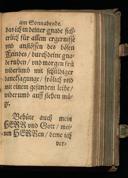 am Sonnabende.
das ich in deiner gnade sich-
erlich für allem ergernisse
und anstössen des bösen
Feindes / durch deine gna-
de ruhen / und morgen früe
widerumb mit schüldiger
dancksagunge / frölich und
mit einem gesunden leibe /
widerumb auff stehen mü-
ge.
Behüte auch mein
HERR und Gott / mei-
nen HERRen / deme ich